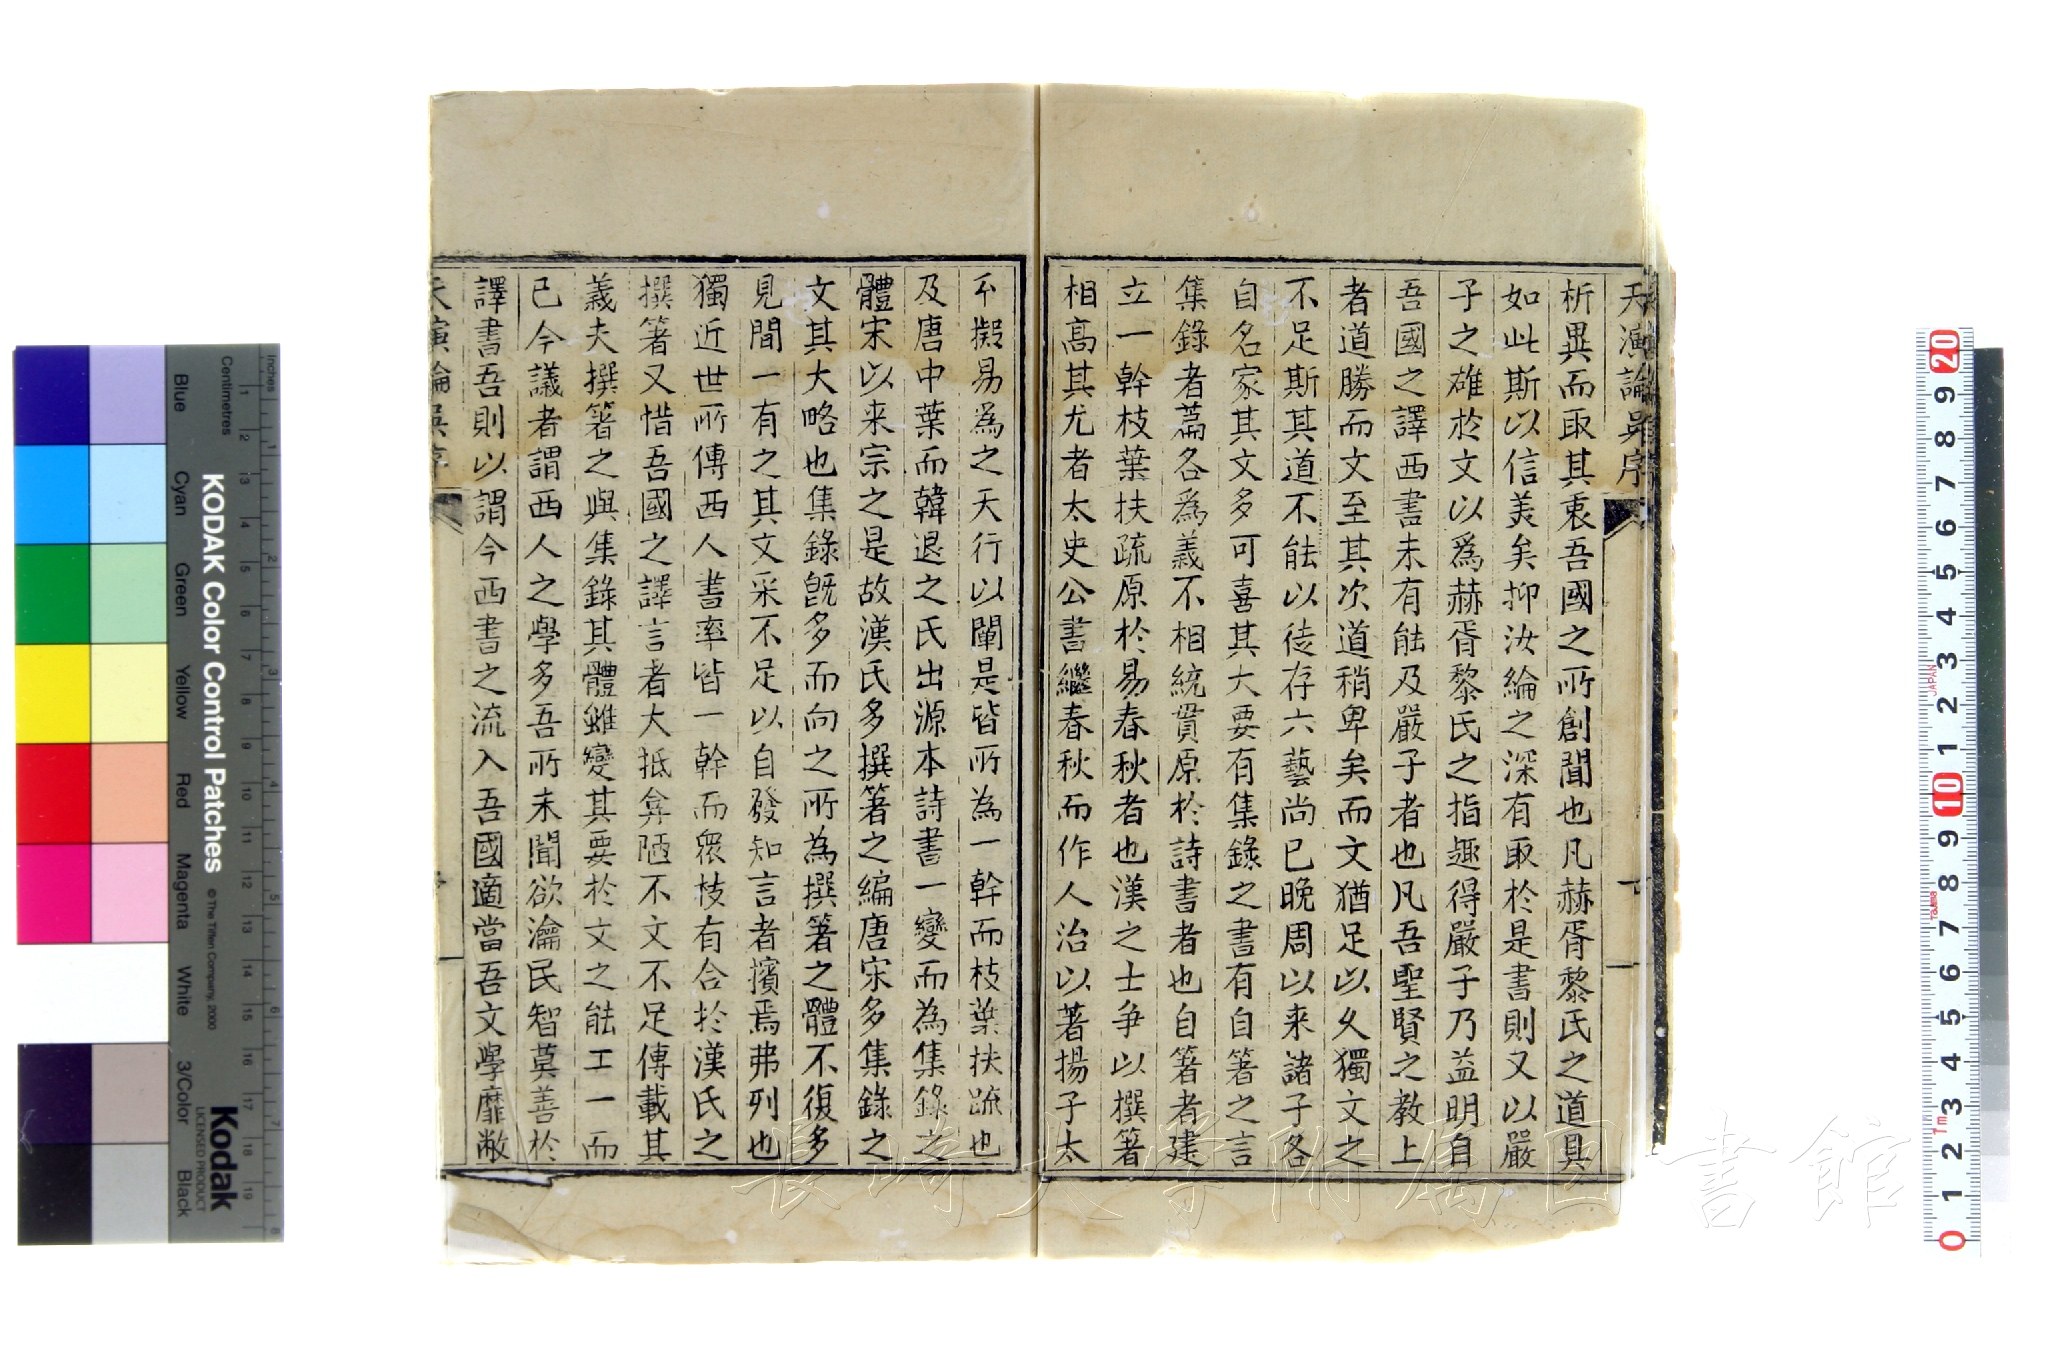 天演論吳序
析異而取其衷吾國之所創聞也凡赫胥黎氏之道具
如此斯以信美矣抑汝綸之深有取於是書則又以嚴
子之雄於文以爲赫胥黎氏之指趣得嚴子乃益明自
吾國之譯西書未有能及嚴子者也凡吾聖賢之教上
者道勝而文至其次道稍卑矣而文猶足以久獨文之
不足斯其道不能以徒存六藝尚已晚周以来諸子各
自名家其文多可喜其大要有集錄之書有自箸之言
集錄者篇各爲義不相統貫原於詩書者也自箸者建
立一幹枝葉扶疏原於易春秋者也漢之士爭以撰箸
相高其尤者太史公書繼春秋而作人治以著揚子太
擬易為之天行以闡是皆所為一幹而枝葉扶疏也
及唐中葉而韓退之氏出源本詩書一變而為集錄之
體宋以来宗之是故漢氏多撰箸之編唐宋多集錄之
文其大略也集錄既多而向之所為撰箸之體不復多
見間一有之其文采不足以自發知言者擯焉弗列也
獨近世所傳西人書率皆一幹而眾枝有合於漢氏之
撰箸又惜吾國之譯言者大抵弇陋不文不足傳載其
義夫撰箸之與集錄其體雖變其要於文之能工一而
已今議者謂西人之學多吾所未聞欲瀹民智莫善於
譯書吾則以謂今西書之流入吾國適當吾文學靡敝
天演論吳序
長崎大学附属図書館
KODAK Color Control Patches
© The Tiffen Company, 2000
Kodak
LICENSED PRODUCT
Inches
Centimetres
Blue Cyan Green Yellow Red Magenta White 3/Color Black
1 2 3 4 5 6 7 8 9 10 11 12 13 14 15 16 17 18 19
20 9 8 7 6 5 4 3 2 1 10 9 8 7 6 5 4 3 2 1 0
JAPAN